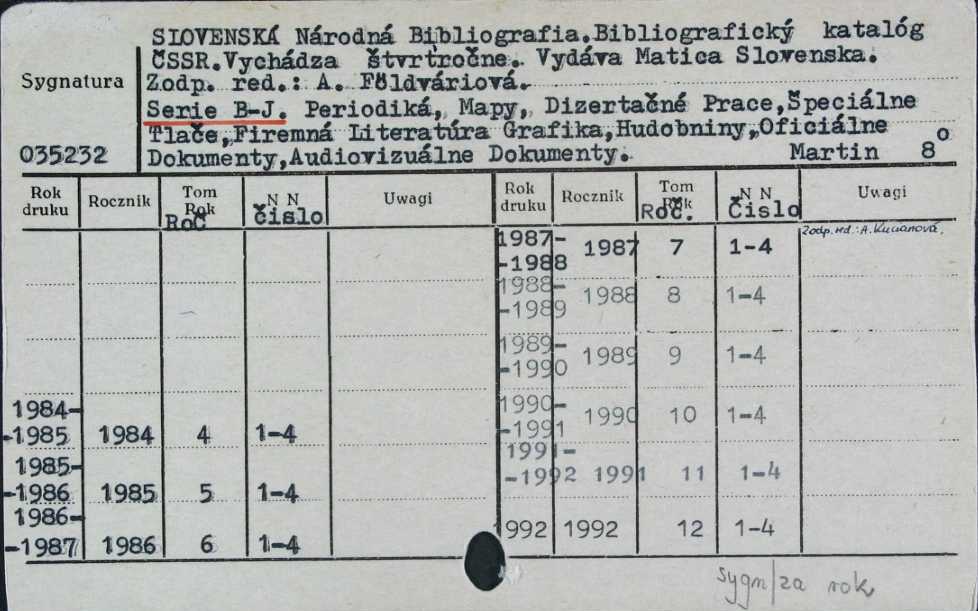 SLOVENSKÁ Národná Bibliografia.Bibliografický katalóg
ČSSR.Vychádza štvrtročne. Vydáva Matica Slovenska.
Sygnatura Zodp. red.: A. Földváriová.
Serie B-J. Periodiká, Mapy, Dizertačné Prace,Špeciálne
Tlače,Firemná Literatúra Grafika,Hudobniny,Oficiálne
035232 Dokumenty,Audiovizuálne Dokumenty. Martin 8°
Rok druku Rocznik Tom Rok Roč N N číslo Uwagi Rok druku Rocznik Tom Rok Roč. N N Číslo Uwagi
1987-
-1988 1987 7 1-4 Zodp. red.: A.
1988-
-1989 1988 8 1-4
1989-
-1990 1989 9 1-4
1984-
-1985 1984 4 1-4
1990-
-1991 1990 10 1-4
1985-
-1986 1985 5 1-4
1991-
-1992 1991 11 1-4
1986-
-1987 1986 6 1-4
1992 1992 12 1-4
sygn/za rok